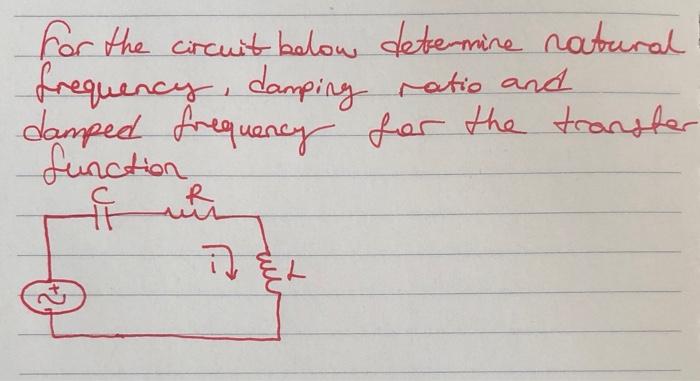 For the circuit below determine natural
frequency, damping ratio and
damped frequency for the transfer
function
C R
i L
+
-